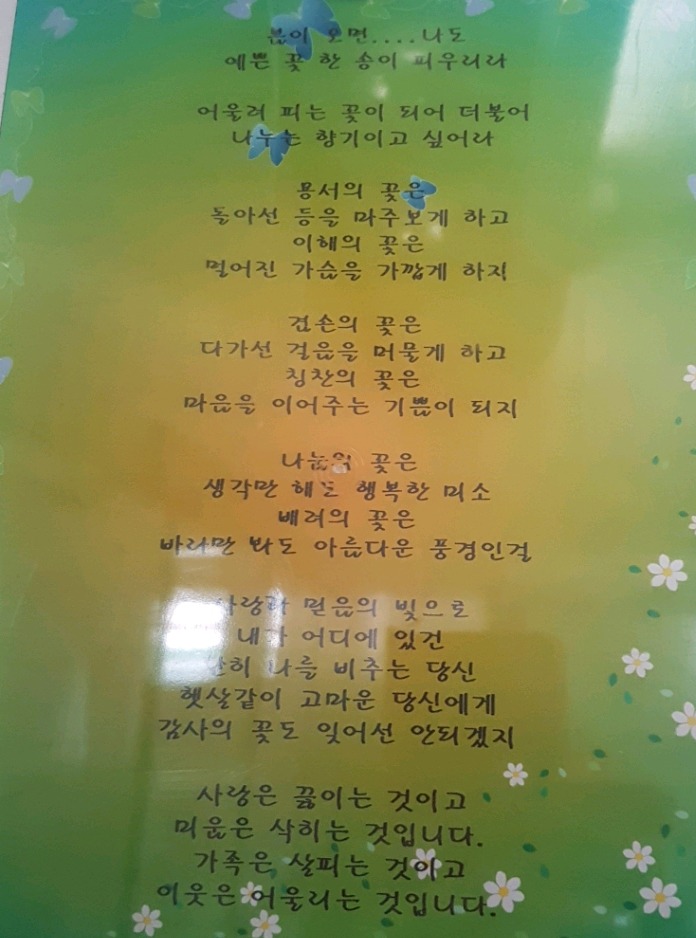 봄이 오면....나도
예쁜 꽃 한 송이 피우리라
어울려 피는 꽃이 되어 더불어
나누는 향기이고 싶어라
용서의 꽃은
돌아선 등을 마주보게 하고
이해의 꽃은
멀어진 가슴을 가깝게 하지
겸손의 꽃은
다가선 걸음을 머물게 하고
칭찬의 꽃은
마음을 이어주는 기쁨이 되지
나눔의 꽃은
생각만 해도 행복한 미소
배려의 꽃은
바라만 봐도 아름다운 풍경인걸
사랑과 믿음의 빛으로
내가 어디에 있건
나를 비추는 당신
햇살같이 고마운 당신에게
감사의 꽃도 잊어선 안되겠지
사랑은 끓이는 것이고
미움은 삭히는 것입니다.
가족은 살피는 것이고
이웃은 어울리는 것입니다.